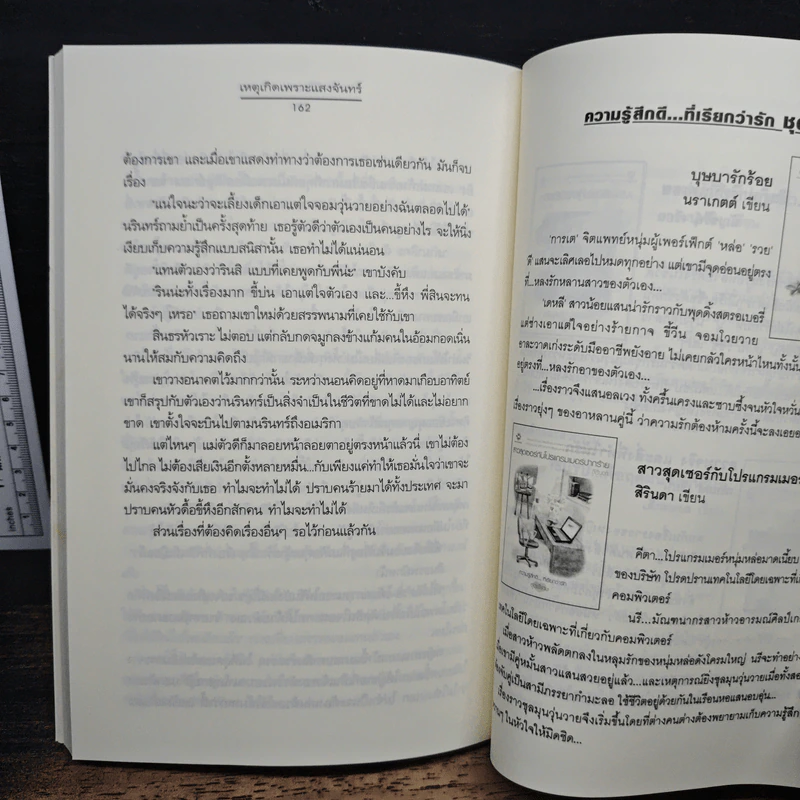 เหตุเกิดเพราะแสงจันทร์
162
ต้องการเขา และเมื่อเขาแสดงท่าทางว่าต้องการเธอเช่นเดียวกัน มันก็จบ
เรื่อง
'แน่ใจนะว่าจะเลี้ยงเด็กเอาแต่ใจจอมวุ่นวายอย่างฉันตลอดไปได้'
นรินทร์ถามย้ำเป็นครั้งสุดท้าย เธอรู้ตัวดีว่าตัวเองเป็นคนอย่างไร จะให้นิ่ง
เงียบเก็บความรู้สึกแบบสนิสานั้น เธอทำไม่ได้แน่นอน
"แทนตัวเองว่ารินสิ แบบที่เคยพูดกับพี่น่ะ" เขาบังคับ
"รินน่ะทั้งเรื่องมาก ขี้บ่น เอาแต่ใจตัวเอง และ...ขี้หึง พี่สินจะทน
ได้จริงๆ เหรอ" เธอถามเขาใหม่ด้วยสรรพนามที่เคยใช้กับเขา
สินธรหัวเราะ ไม่ตอบ แต่กลับกดจมูกลงข้างแก้มคนในอ้อมกอดเนิ่น
นานให้สมกับความคิดถึง
เขาวางอนาคตไว้มากกว่านั้น ระหว่างนอนคิดอยู่ที่หาดมาเกือบอาทิตย์
เขาก็สรุปกับตัวเองว่านรินทร์เป็นสิ่งจำเป็นในชีวิตที่ขาดไม่ได้และไม่อยาก
ขาด เขาตั้งใจจะบินไปตามนรินทร์ถึงอเมริกา
แต่ไหนๆ แม่ตัวดีก็มาลอยหน้าลอยตาอยู่ตรงหน้าแล้วนี่ เขาไม่ต้อง
ไปไกล ไม่ต้องเสียเงินอีกตั้งหลายหมื่น...กับเพียงแค่ทำให้เธอมั่นใจว่าเขาจะ
มั่นคงจริงจังกับเธอ ทำไมจะทำไม่ได้ ปราบคนร้ายมาได้ทั้งประเทศ จะมา
ปราบคนหัวดื้อขี้หึงอีกสักคน ทำไมจะทำไม่ได้
ส่วนเรื่องที่ต้องคิดเรื่องอื่นๆ รอไว้ก่อนแล้วกัน
ความรู้สึกดี...ที่เรียกว่ารัก
บุษบารักร้อย
นราเกตต์ เขียน
'การเต' จิตแพทย์หนุ่มผู้เพอร์เฟ็กต์ 'หล่อ' 'รวย'
ดี แสนจะเลิศเลอไปหมดทุกอย่าง แต่เขามีจุดอ่อนอยู่ตรง
ที่...หลงรักหลานสาวของตัวเอง...
'เดหลี' สาวน้อยแสนน่ารักราวกับพุดดิ้งสตรอเบอรี่
แต่ร่างเอาแต่ใจอย่างร้ายกาจ ขี้วีน จอมโวยวาย
อาละวาดเก่งระดับมืออาชีพยังอาย ไม่เคยกลัวใครหน้าไหนทั้งนั้น
อยู่ตรงที่...หลงรักอาของตัวเอง...
...เรื่องราวจึงแสนอลเวง ทั้งครื้นเครงและซาบซึ้งจนหัวใจหวั่น
เรื่องยุ่งๆ ของอาหลานคู่นี้ ว่าความรักต้องห้ามครั้งนี้จะลงเอย
สาวสุดเซอร์กับโปรแกรมเมอร์
สิรินดา เขียน
สาวสุดเซอร์กับโปรแกรมเมอร์มาดร้าย
คีตา...โปรแกรมเมอร์หนุ่มหล่อมาดเนี้ยบ
ของบริษัท โปรดปรานเทคโนโลยีโดยเฉพาะที่
คอมพิวเตอร์
นรี...มัณฑนากรสาวห้าวอารมณ์ศิลป์
เทคโนโลยีโดยเฉพาะที่เกี่ยวกับคอมพิวเตอร์
เมื่อสาวห้าวพลัดตกลงในหลุมรักของหนุ่มหล่อดังโครมใหญ่ นรีจะทำอย่าง
เขามีคู่หมั้นสาวแสนสวยอยู่แล้ว...และเหตุการณ์ยิ่งชุลมุนวุ่นวายเมื่อทั้งสอง
คู่เป็นสามีภรรยากำมะลอ ใช้ชีวิตอยู่ด้วยกันในเรือนหอแสนอบอุ่น...
เรื่องราวชุลมุนวุ่นวายจึงเริ่มขึ้นโดยที่ต่างคนต่างต้องพยายามเก็บความรู้สึก
ในหัวใจให้มิดชิด...